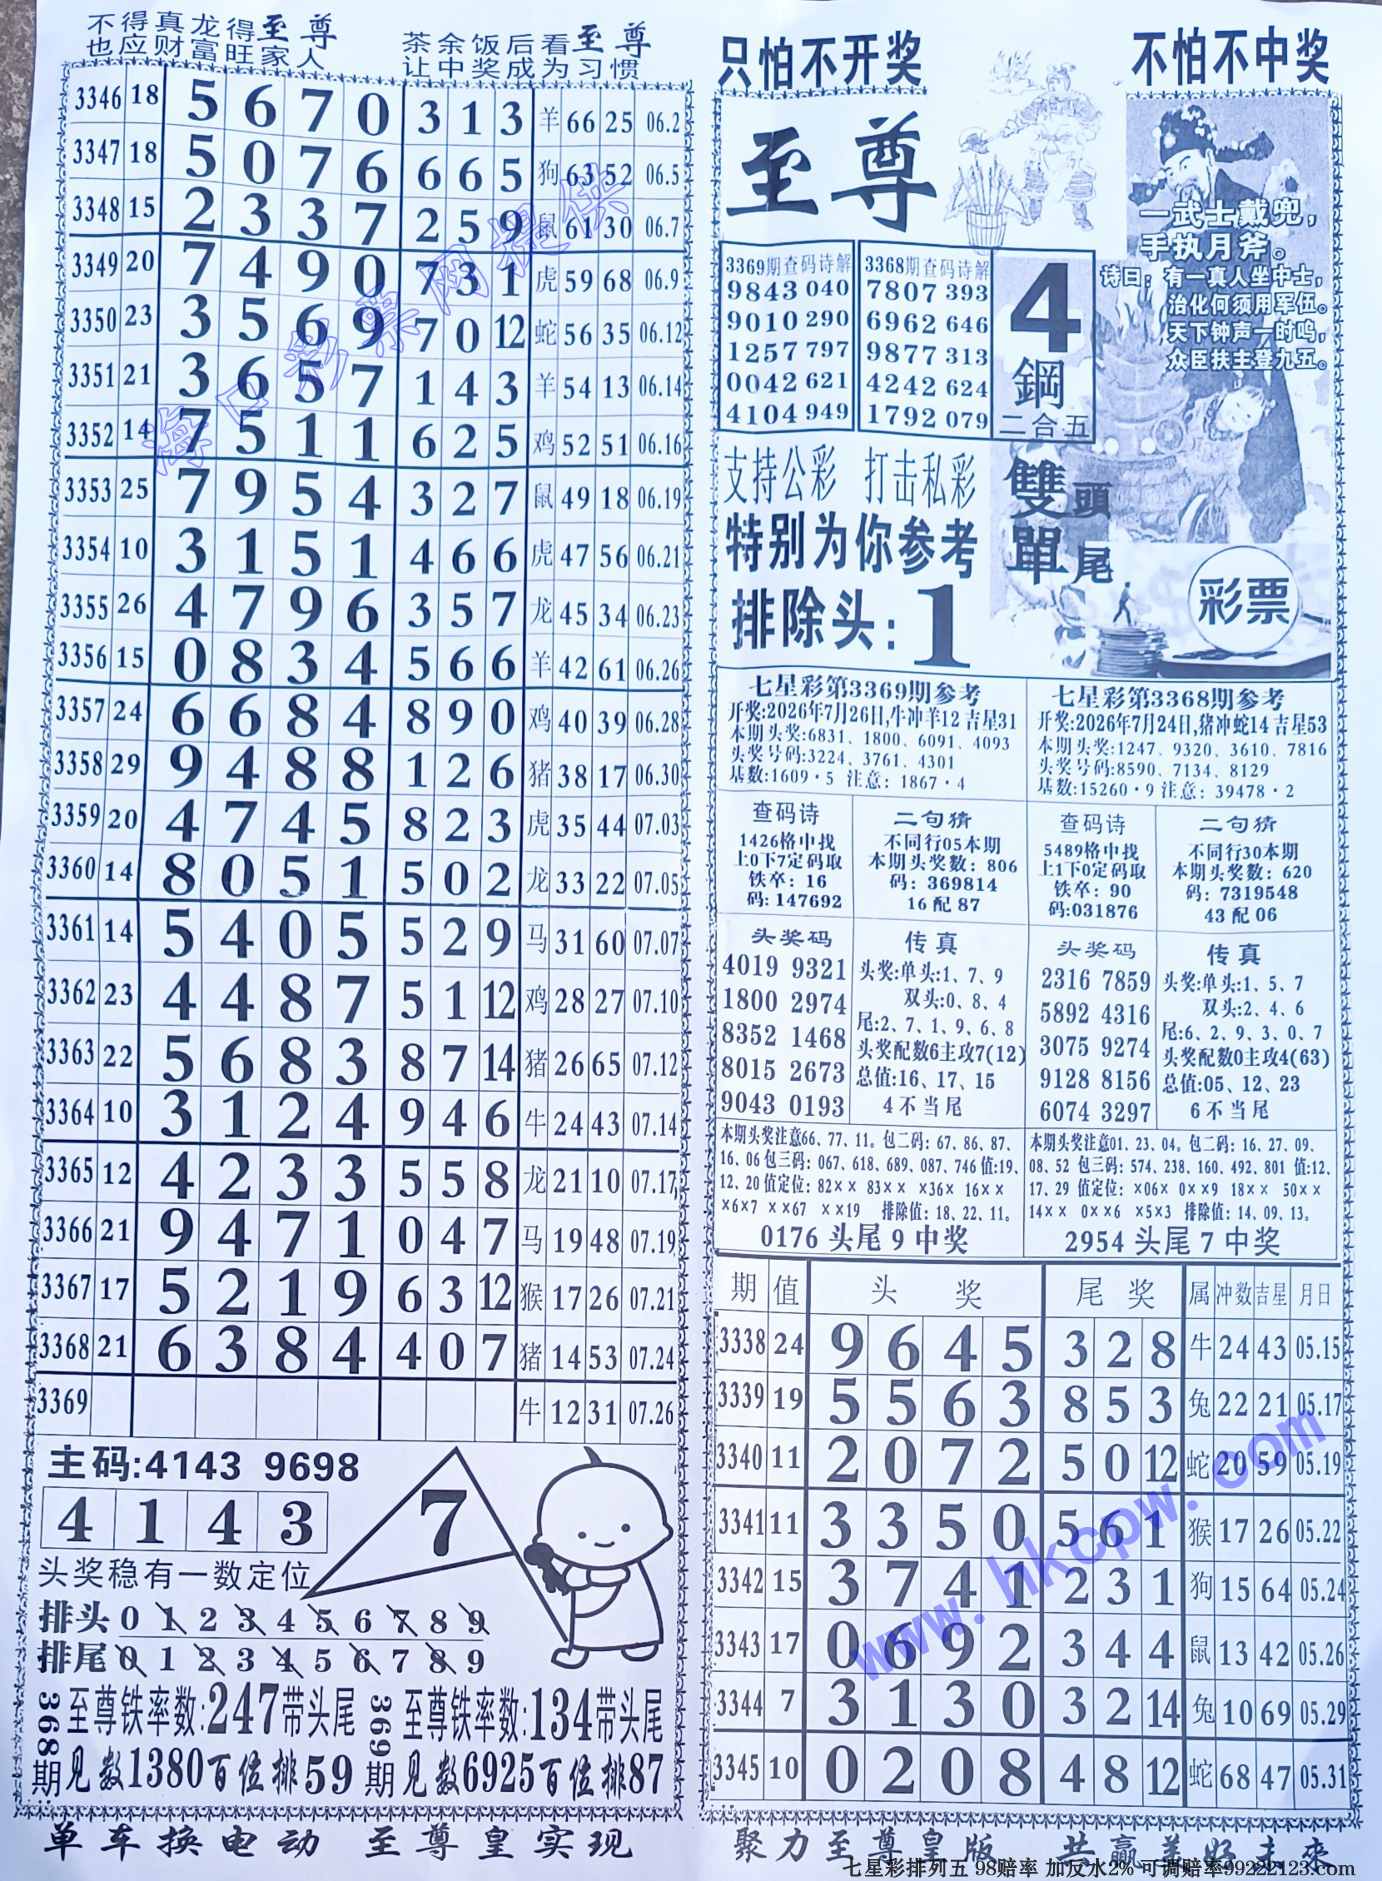 不得真龙得至尊
也应财富旺家人
茶余饭后看至尊
让中奖成为习惯
3346 18 5 6 7 0 3 1 3 羊 66 25 06.2
3347 18 5 0 7 6 6 6 5 狗 63 52 06.5
3348 15 2 3 3 7 2 5 9 鼠 61 30 06.7
3349 20 7 4 9 0 7 3 1 虎 59 68 06.9
3350 23 3 5 6 9 7 0 12 蛇 56 35 06.12
3351 21 3 6 5 7 1 4 3 羊 54 13 06.14
3352 14 7 5 1 1 6 2 5 鸡 52 51 06.16
3353 25 7 9 5 4 3 2 7 鼠 49 18 06.19
3354 10 3 1 5 1 4 6 6 虎 47 56 06.21
3355 26 4 7 9 6 3 5 7 龙 45 34 06.23
3356 15 0 8 3 4 5 6 6 羊 42 61 06.26
3357 24 6 6 8 4 8 9 0 鸡 40 39 06.28
3358 29 9 4 8 8 1 2 6 猪 38 17 06.30
3359 20 4 7 4 5 8 2 3 虎 35 44 07.03
3360 14 8 0 5 1 5 0 2 龙 33 22 07.05
3361 14 5 4 0 5 5 2 9 马 31 60 07.07
3362 23 4 4 8 7 5 1 12 鸡 28 27 07.10
3363 22 5 6 8 3 8 7 14 猪 26 65 07.12
3364 10 3 1 2 4 9 4 6 牛 24 43 07.14
3365 12 4 2 3 3 5 5 8 龙 21 10 07.17
3366 21 9 4 7 1 0 4 7 马 19 48 07.19
3367 17 5 2 1 9 6 3 12 猴 17 26 07.21
3368 21 6 3 8 4 4 0 7 猪 14 53 07.24
3369 牛 12 31 07.26
海口彩票网提供
主码:4143 9698
4 1 4 3
7
头奖稳有一数定位
排头 0 1 2 3 4 5 6 7 8 9
排尾 0 1 2 3 4 5 6 7 8 9
368期
至尊铁率数:247带头尾
见数1380百位排59
369期
至尊铁率数:134带头尾
见数6925百位排87
单车换电动 至尊皇实现
只怕不开奖
不怕不中奖
至尊
一武士戴兜,
手执月斧。
诗曰:有一真人坐中土,
治化何须用军伍。
天下钟声一时鸣,
众臣扶主登九五。
3369期查码诗解
9843 040
9010 290
1257 797
0042 621
4104 949
3368期查码诗解
7807 393
6962 646
9877 313
4242 624
1792 079
4
鋼
二合五
支持公彩 打击私彩
特别为你参考
排除头:1
雙頭
單尾
彩票
七星彩第3369期参考
开奖:2026年7月26日,牛冲羊12 吉星31
本期头奖:6831、1800、6091、4093
头奖号码:3224、3761、4301
基数:1609·5 注意:1867·4
七星彩第3368期参考
开奖:2026年7月24日,猪冲蛇14 吉星53
本期头奖:1247、9320、3610、7816
头奖号码:8590、7134、8129
基数:15260·9 注意:39478·2
查码诗
1426格中找
上0下7定码取
铁卒:16
码:147692
二句猜
不同行05本期
本期头奖数:806
码:369814
16配87
查码诗
5489格中找
上1下0定码取
铁卒:90
码:031876
二句猜
不同行30本期
本期头奖数:620
码:7319548
43配06
头奖码
4019 9321
1800 2974
8352 1468
8015 2673
9043 0193
传真
头奖:单头:1、7、9
双头:0、8、4
尾:2、7、1、9、6、8
头奖配数6主攻7(12)
总值:16、17、15
4不当尾
头奖码
2316 7859
5892 4316
3075 9274
9128 8156
6074 3297
传真
头奖:单头:1、5、7
双头:2、4、6
尾:6、2、9、3、0、7
头奖配数0主攻4(63)
总值:05、12、23
6不当尾
本期头奖注意66、77、11。包二码:67、86、87、
16、06 包三码:067、618、689、087、746 值:19、
12、20 值定位:82×× 83×× ×36× 16××
×6×7 ××67 ××19 排除值:18、22、11。
0176 头尾 9 中奖
本期头奖注意01、23、04。包二码:16、27、09、
08、52 包三码:574、238、160、492、801 值:12、
17、29 值定位:×06× 0××9 18×× 50××
14×× 0××6 ×5×3 排除值:14、09、13。
2954 头尾 7 中奖
期 值 头奖 尾奖 属 冲数 吉星 月日
3338 24 9 6 4 5 3 2 8 牛 24 43 05.15
3339 19 5 5 6 3 8 5 3 兔 22 21 05.17
3340 11 2 0 7 2 5 0 12 蛇 20 59 05.19
3341 11 3 3 5 0 5 6 1 猴 17 26 05.22
3342 15 3 7 4 1 2 3 1 狗 15 64 05.24
3343 17 0 6 9 2 3 4 4 鼠 13 42 05.26
3344 7 3 1 3 0 3 2 14 兔 10 69 05.29
3345 10 0 2 0 8 4 8 12 蛇 68 47 05.31
www.hkcpw.com
聚力至尊皇版 共赢美好未来
七星彩排列五 98赔率 加反水2% 可调赔率99222123.com